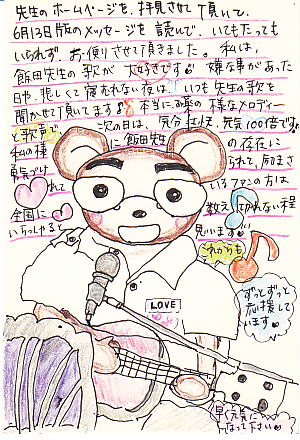 先生のホームページを、拝見させて頂いて、
6月13日版のメッセージを読んで、いてもたっても
いられず、お便りさせて頂きました。私は、
飯田先生の歌が大好きです。嫌な事があった
日や、悲しくて眠れない夜は、いつも先生の歌を
聞かせて頂いてます♪ 本当にお薬の様なメロディー
と歌声で、次の日は、気分壮快、元気100倍です。
私の様に飯田先生の存在に
勇気づけられて、励まされて
いるファンの方は
全国に数え切れない程
いらっしゃると思います
これからも
ずっとずっと
応援して
います
LOVE
早く元気に
なって下さい